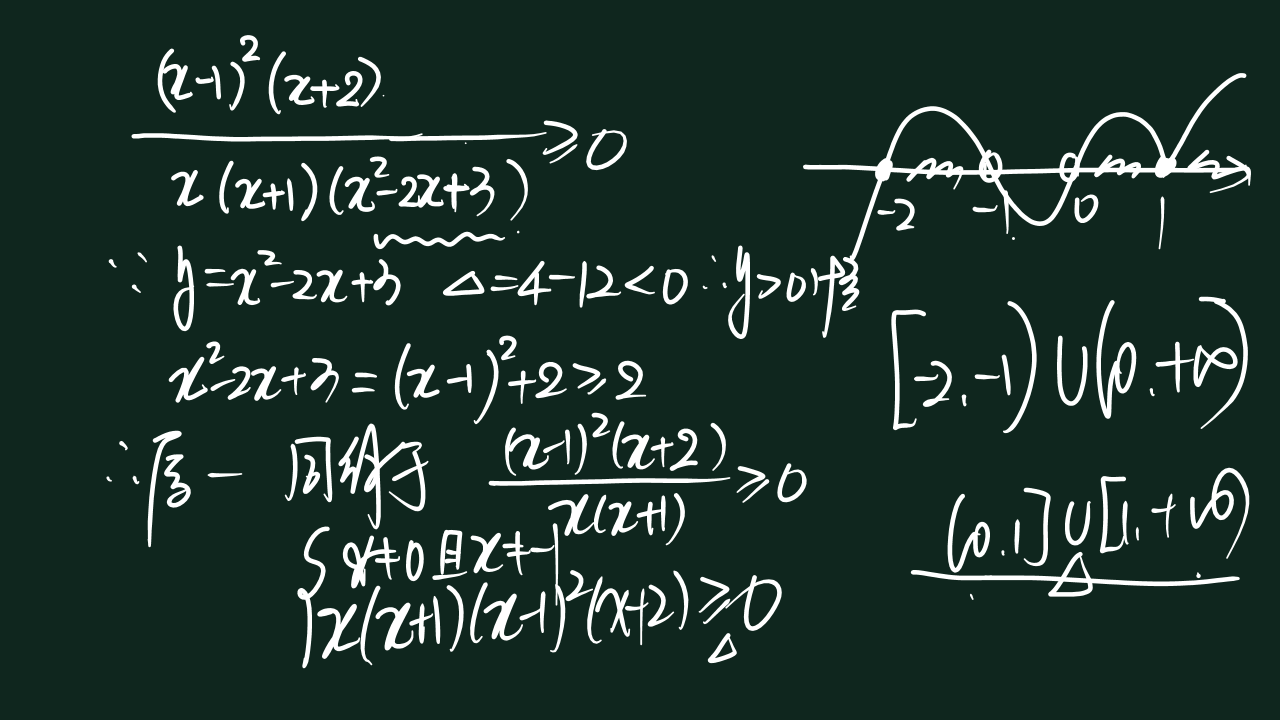 (x-1)²(x+2)
x(x+1)(x²-2x+3) ≥0
∵ y=x²-2x+3 △=4-12<0 ∴y>0恒
x²-2x+3=(x-1)²+2≥2
∴原 - 同解于 (x-1)²(x+2)
x(x+1) ≥0
{ x≠0且x≠-1
x(x+1)(x-1)²(x+2)≥0
△
-2 -1 0 1
[-2,-1)∪(0,+∞)
(0,1]∪[1,+∞)
△